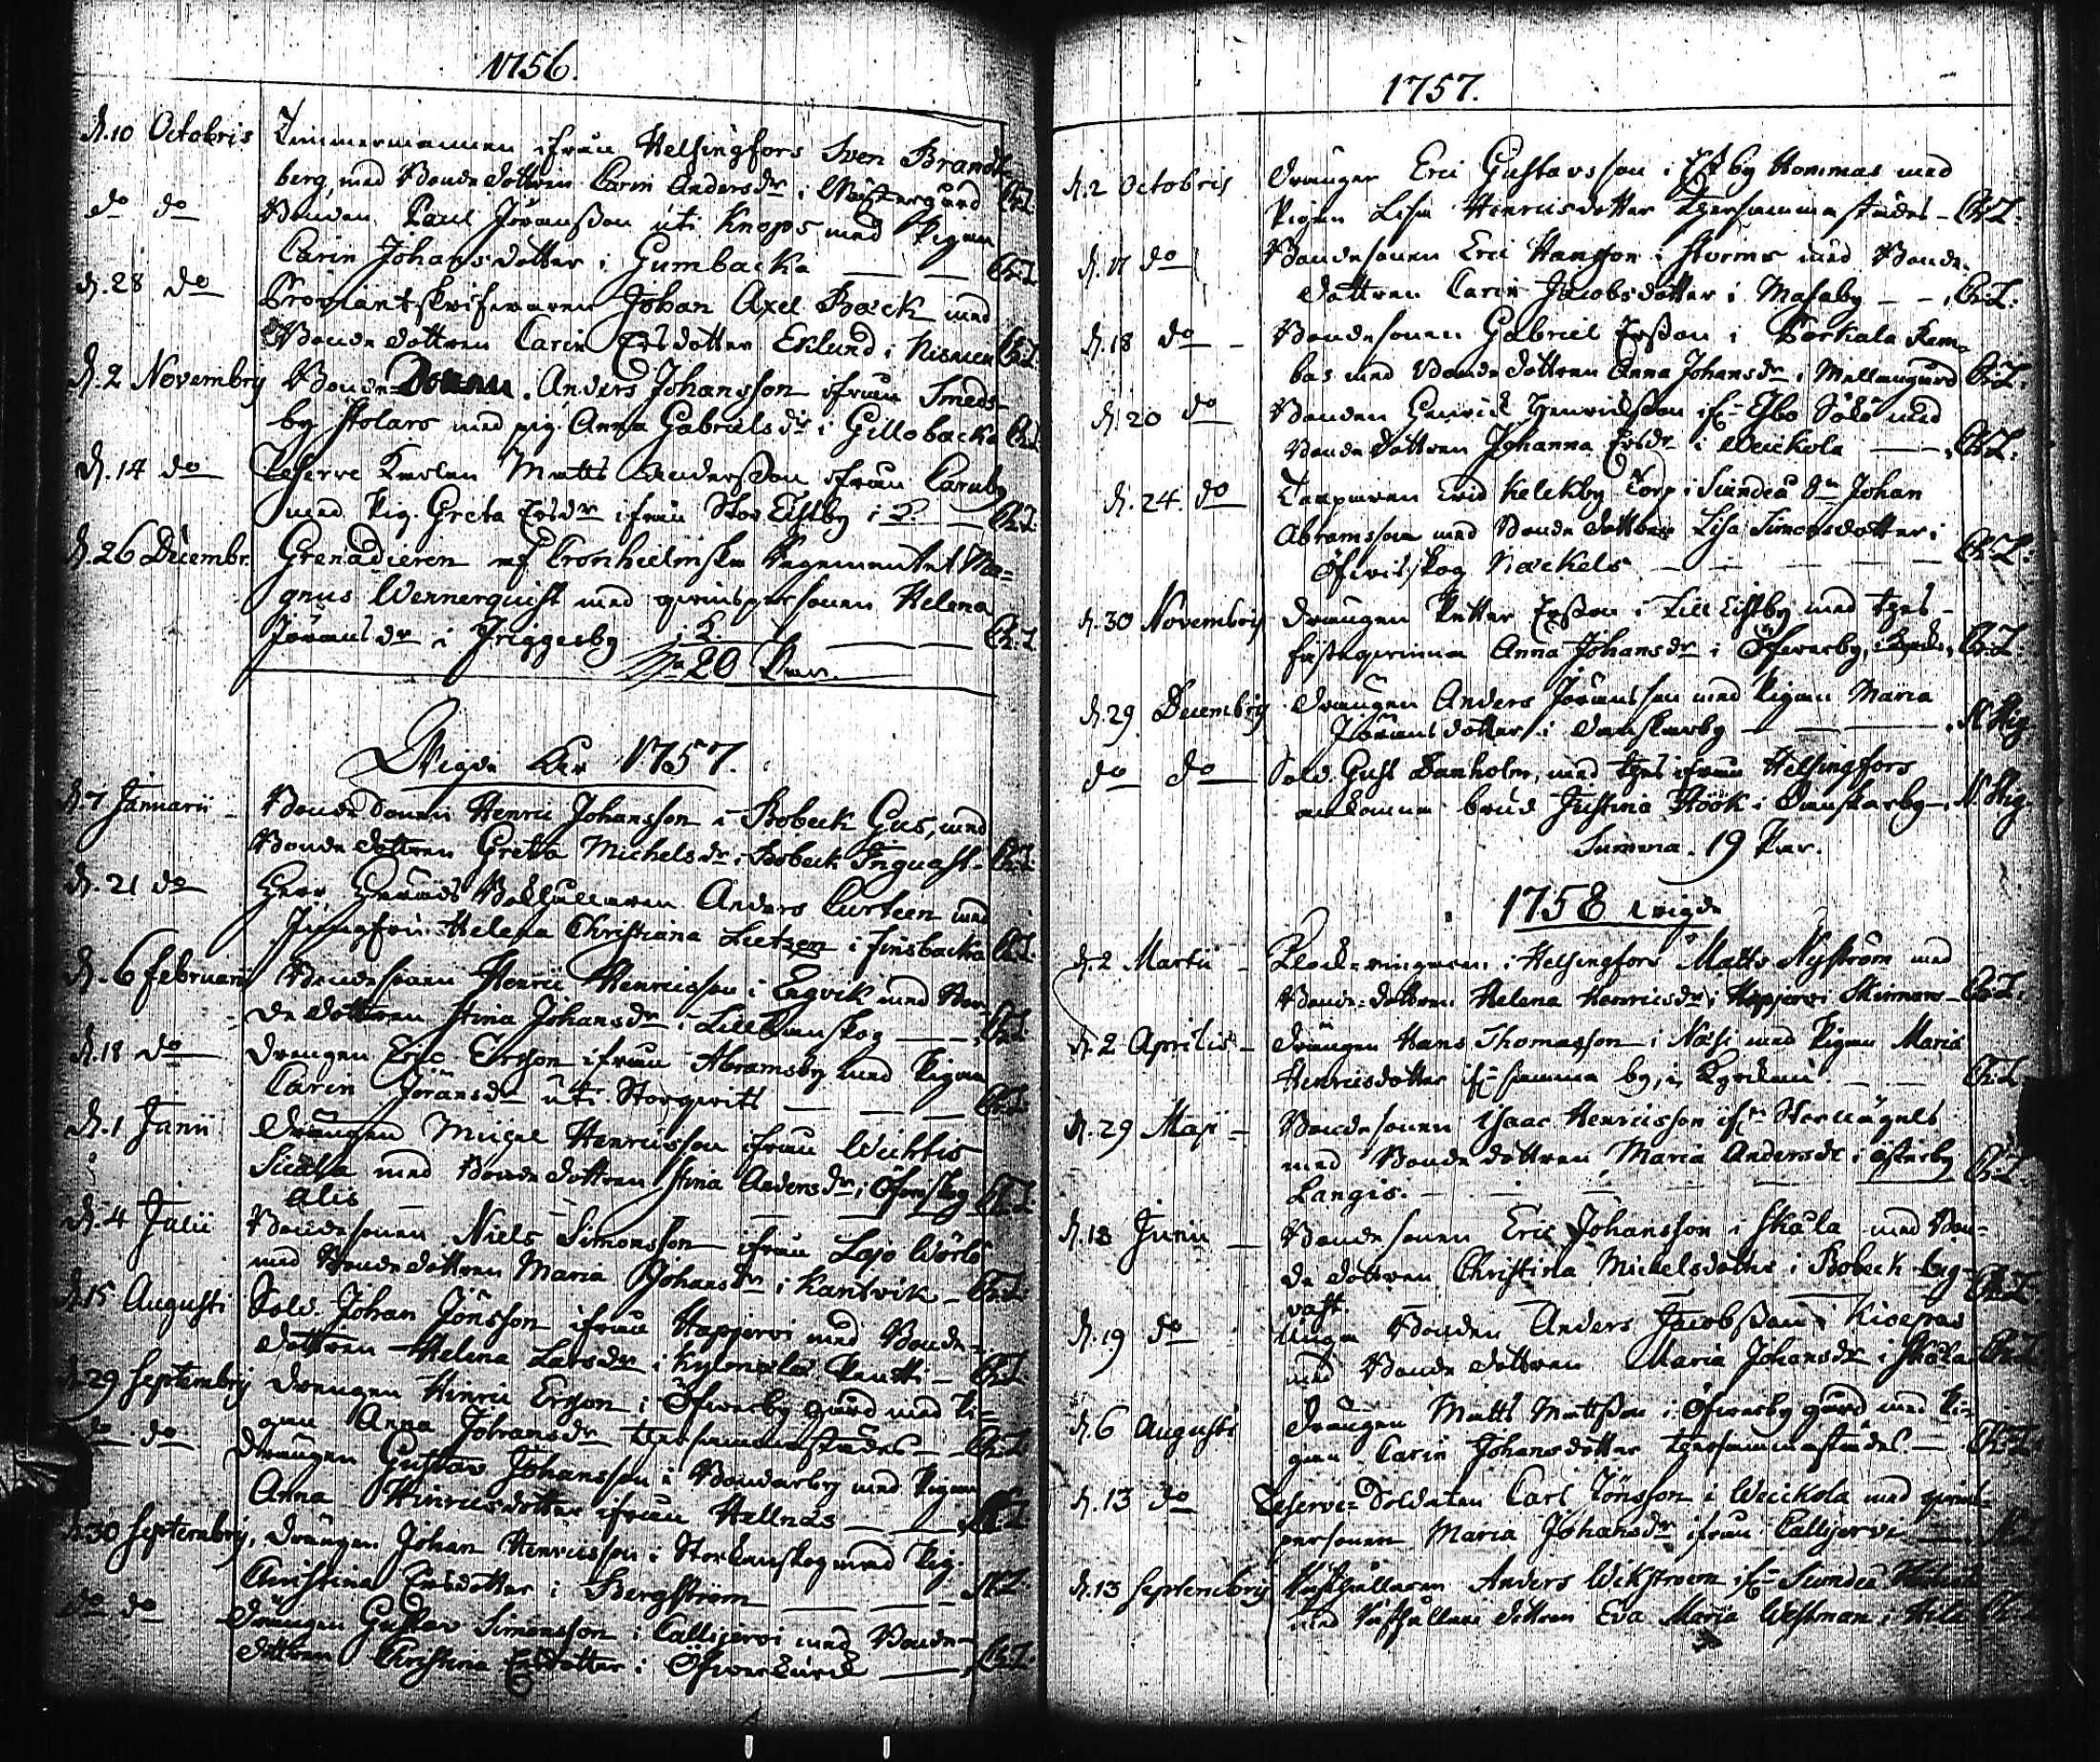 1756.
d. 10 Octobris Timmermannen ifrån Helsingfors Sven Brandt
berg, med Bonde dottren Carin Andersdr i Wästergård Ch:T:
do do Bonden Paul Jöransson uti Knaps med Pigan
Carin Johansdotter i Gumbacka Ch:T:
d. 28 do Proviantskrifvaren Johan Axel Bæck med
Bonde dottren Carin Ersdotter Eklund i Ch:T:
d. 2 Novembris Bonde Anders Johansson ifrån Smeds-
by Stolars med pig. Anna Gabrielsdr i Gillobacka Ch:T:
d. 14 do Reserve Karlen Matts Andersson ifrån Caruby
med Pig. Greta Ersdr ifrån Stor Ch:T:
d. 26 Decembr. Grenadieren af Cronhielmska Regementet Ma=
gnus Wennerquist med qvinspersonen Helena
Jöransdr i Friggesby Ch:T:
20 Par.
Wigde Åhr 1757.
d. 7 Januarii Bonde Sonen Henric Johansson i Bobeck Gus, med
Bonde dottren Greta Michelsdr i Bobeck Ingvast. Ch:T:
d. 21 do Herr Härads Bokhållaren Anders Curteen med
Jungfru Helena Christiana Lietzen i Finsbacka Ch:T:
d. 6 Februarii Bondesonen Henric Henricsson i Engvik med Bon-
de dottren Stina Johansdr i Lill Kanskog Ch:T:
d. 18 do Drengen Eric Ersson ifrån Abramsby med Pigan
Carin Jöransdr uti Storqvits Ch:T:
d. 1 Junii Drängen Michel Henricsson ifrån Wichtis
med Bonde dottren Stina Andersdr i Öfverskog Ch:T:
alis
d. 4 Julii Bondesonen Niels Simonsson ifrån Lojo
med Bonde dottren Maria Johansdr i Kantvik Ch:T:
d. 15 Augusti Sold. Johan Jönsson ifrån Hapjervi med Bonde-
dottren Helena Larsdr i Kylmäla Pentti Ch:T:
d. 29 Septembris Drengen Hinric Ersson i Öfverby gård med Pi-
gan Anna Johansdr thersammastädes Ch:T:
do do Drängen Gustav Johansson i Bondarby med Pigan
Anna Hinricsdotter ifrån Hellnäs
d. 30 Septembris, Drängen Johan Henricsson i Storkanskog med Pig.
Christina Ersdotter i Bergström
do do Drängen Gustav Simonsson i Callijervi med Bonde-
dottren Christina Ersdotter i Öfver Ch:T:
1757.
d. 2 Octobris Drängen Eric Gustavsson i Estby Hommas med
Pigan Lisa Henricsdotter thersammastädes Ch:T:
d. 17 do Bondesonen Eric Hansson i Storms med Bonde-
dottren Carin Jacobsdotter i Masaby Ch:T:
d. 18 do Bondesonen Gabriel Ersson i Porkala Rem-
bas med Bonde dottren Anna Johansdr i Mellangård Ch:T:
d. 20 do Bonden Henrick Henricksson ifr. Esbo Sökö med
Bonde dottren Johanna Ersdr i Weickola Ch:T:
d. 24. do Torparen vid Kelckby Torp i Siundeå Sn Johan
Abramsson med Bonde dottren Lisa Simonsdotter i
Öfvitsskog Næckels Ch:T:
d. 30 Novembris Drängen Petter Ersson i Lill med thes
fästeqvinna Anna Johansdr i Öfverby, Ch:T:
d. 29 Decembris Drängen Anders Jöransson med Pigan Maria
Jöransdotter i Danskarby
do do Sold. Gust. Danholm, med thes ifrån Helsingfors
ankomne brud Justina Höök i Danskarby
Summa. 19 Par.
1758 Wigde
d. 2 Martii Klock-ringaren i Helsingfors Matts Nyström med
Bonde-dottren Helena Henricsdr i Hapjervi Ch:T:
d. 2 Aprilis Drängen Hans Thomasson i Näsi med Pigan Maria
Henricsdotter ifr. samma by, i Kyrckan. Ch:T:
d. 29 Maji Bondesonen Isaac Henricsson ifrn
med Bonde dottren Maria Andersdr i Österby
Langis. Ch:T:
d. 18 Junii Bonde sonen Eric Johansson i Skåla med Bon-
de dottren Christina Michelsdotter i Bobeck Ing-
vast. Ch:T:
d. 19 do Unga Bonden Anders Jacobsson i
med Bonde dottren Maria Johansdr i Skåla Ch:T:
d. 6 Augusti Drängen Matts Mattsson i Öfverby gård med Pi-
gan Carin Johansdotter thersammastädes Ch:T:
d. 13 do Reserve-Soldaten Carl Jönsson i Weickola med qvins-
personen Maria Johansdr ifrån Callijervi
d. 13 Septembris Anders Wikström ifr. Siundeå
med dottren Eva Maria Westman i